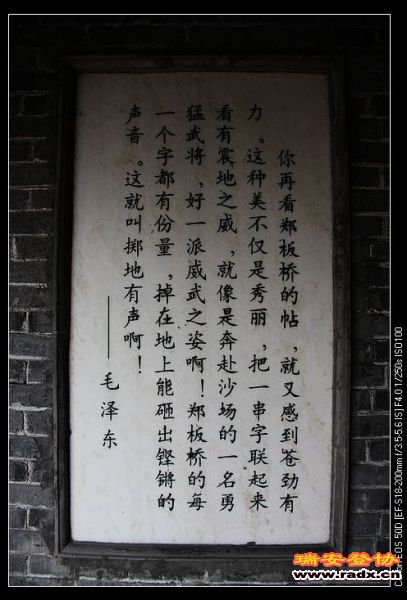 你再看郑板桥的帖，就又感到苍劲有
力。这种美不仅是秀丽，把一串字联起来
看有震地之威，就像是奔赴沙场的一名勇
猛武将，好一派威武之姿啊！郑板桥的每
一个字都有份量，掉在地上能砸出铿锵的
声音。这就叫掷地有声啊！
——毛泽东
CANON EOS 50D [EF-S18-200mm f/3.5-5.6 IS] F4.0 1/250s ISO100
瑞安登协
www.radx.cn